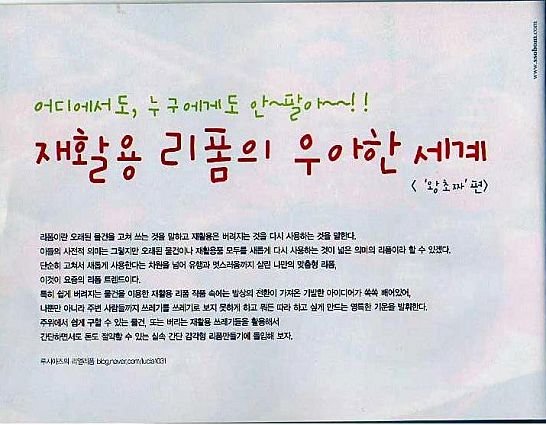 www.ssobom.com
어디에서도, 누구에게도 안~팔아~~!!
재활용 리폼의 우아한 세계
< '왕초짜' 편>
리폼이란 오래된 물건을 고쳐 쓰는 것을 말하고 재활용은 버려지는 것을 다시 사용하는 것을 말한다.
이들의 사전적 의미는 그렇지만 오래된 물건이나 재활용품 모두를 새롭게 다시 사용하는 것이 넓은 의미의 리폼이라 할 수 있겠다.
단순히 고쳐서 새롭게 사용한다는 차원을 넘어 유행과 멋스러움까지 살린 나만의 맞춤형 리폼,
이것이 요즘의 리폼 트렌드이다.
특히 쉽게 버려지는 물건을 이용한 재활용 리폼 작품 속에는 발상의 전환이 가져온 기발한 아이디어가 쏙쏙 배어있어,
나뿐만 아니라 주변 사람들까지 쓰레기를 쓰레기로 보지 못하게 하고 뭐든 따라 하고 싶게 만드는 영특한 기운을 발휘한다.
주위에서 쉽게 구할 수 있는 물건, 또는 버리는 재활용 쓰레기들을 활용해서
간단하면서도 돈도 절약할 수 있는 실속 간단 감각형 리폼만들기에 돌입해 보자.
루시아즈의 리얼리폼 blog.naver.com/lucia1031